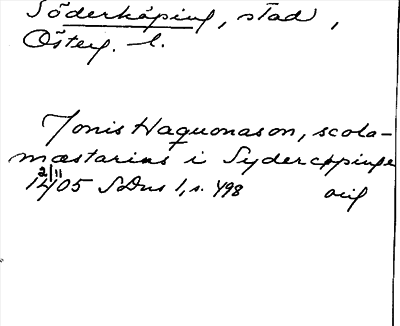 Söderköping, stad,
Österg. l.
Jonis Haquonason, scola-
mæstarius i Sydercppinge
2/11
1405 SDns 1, s. 498 avig